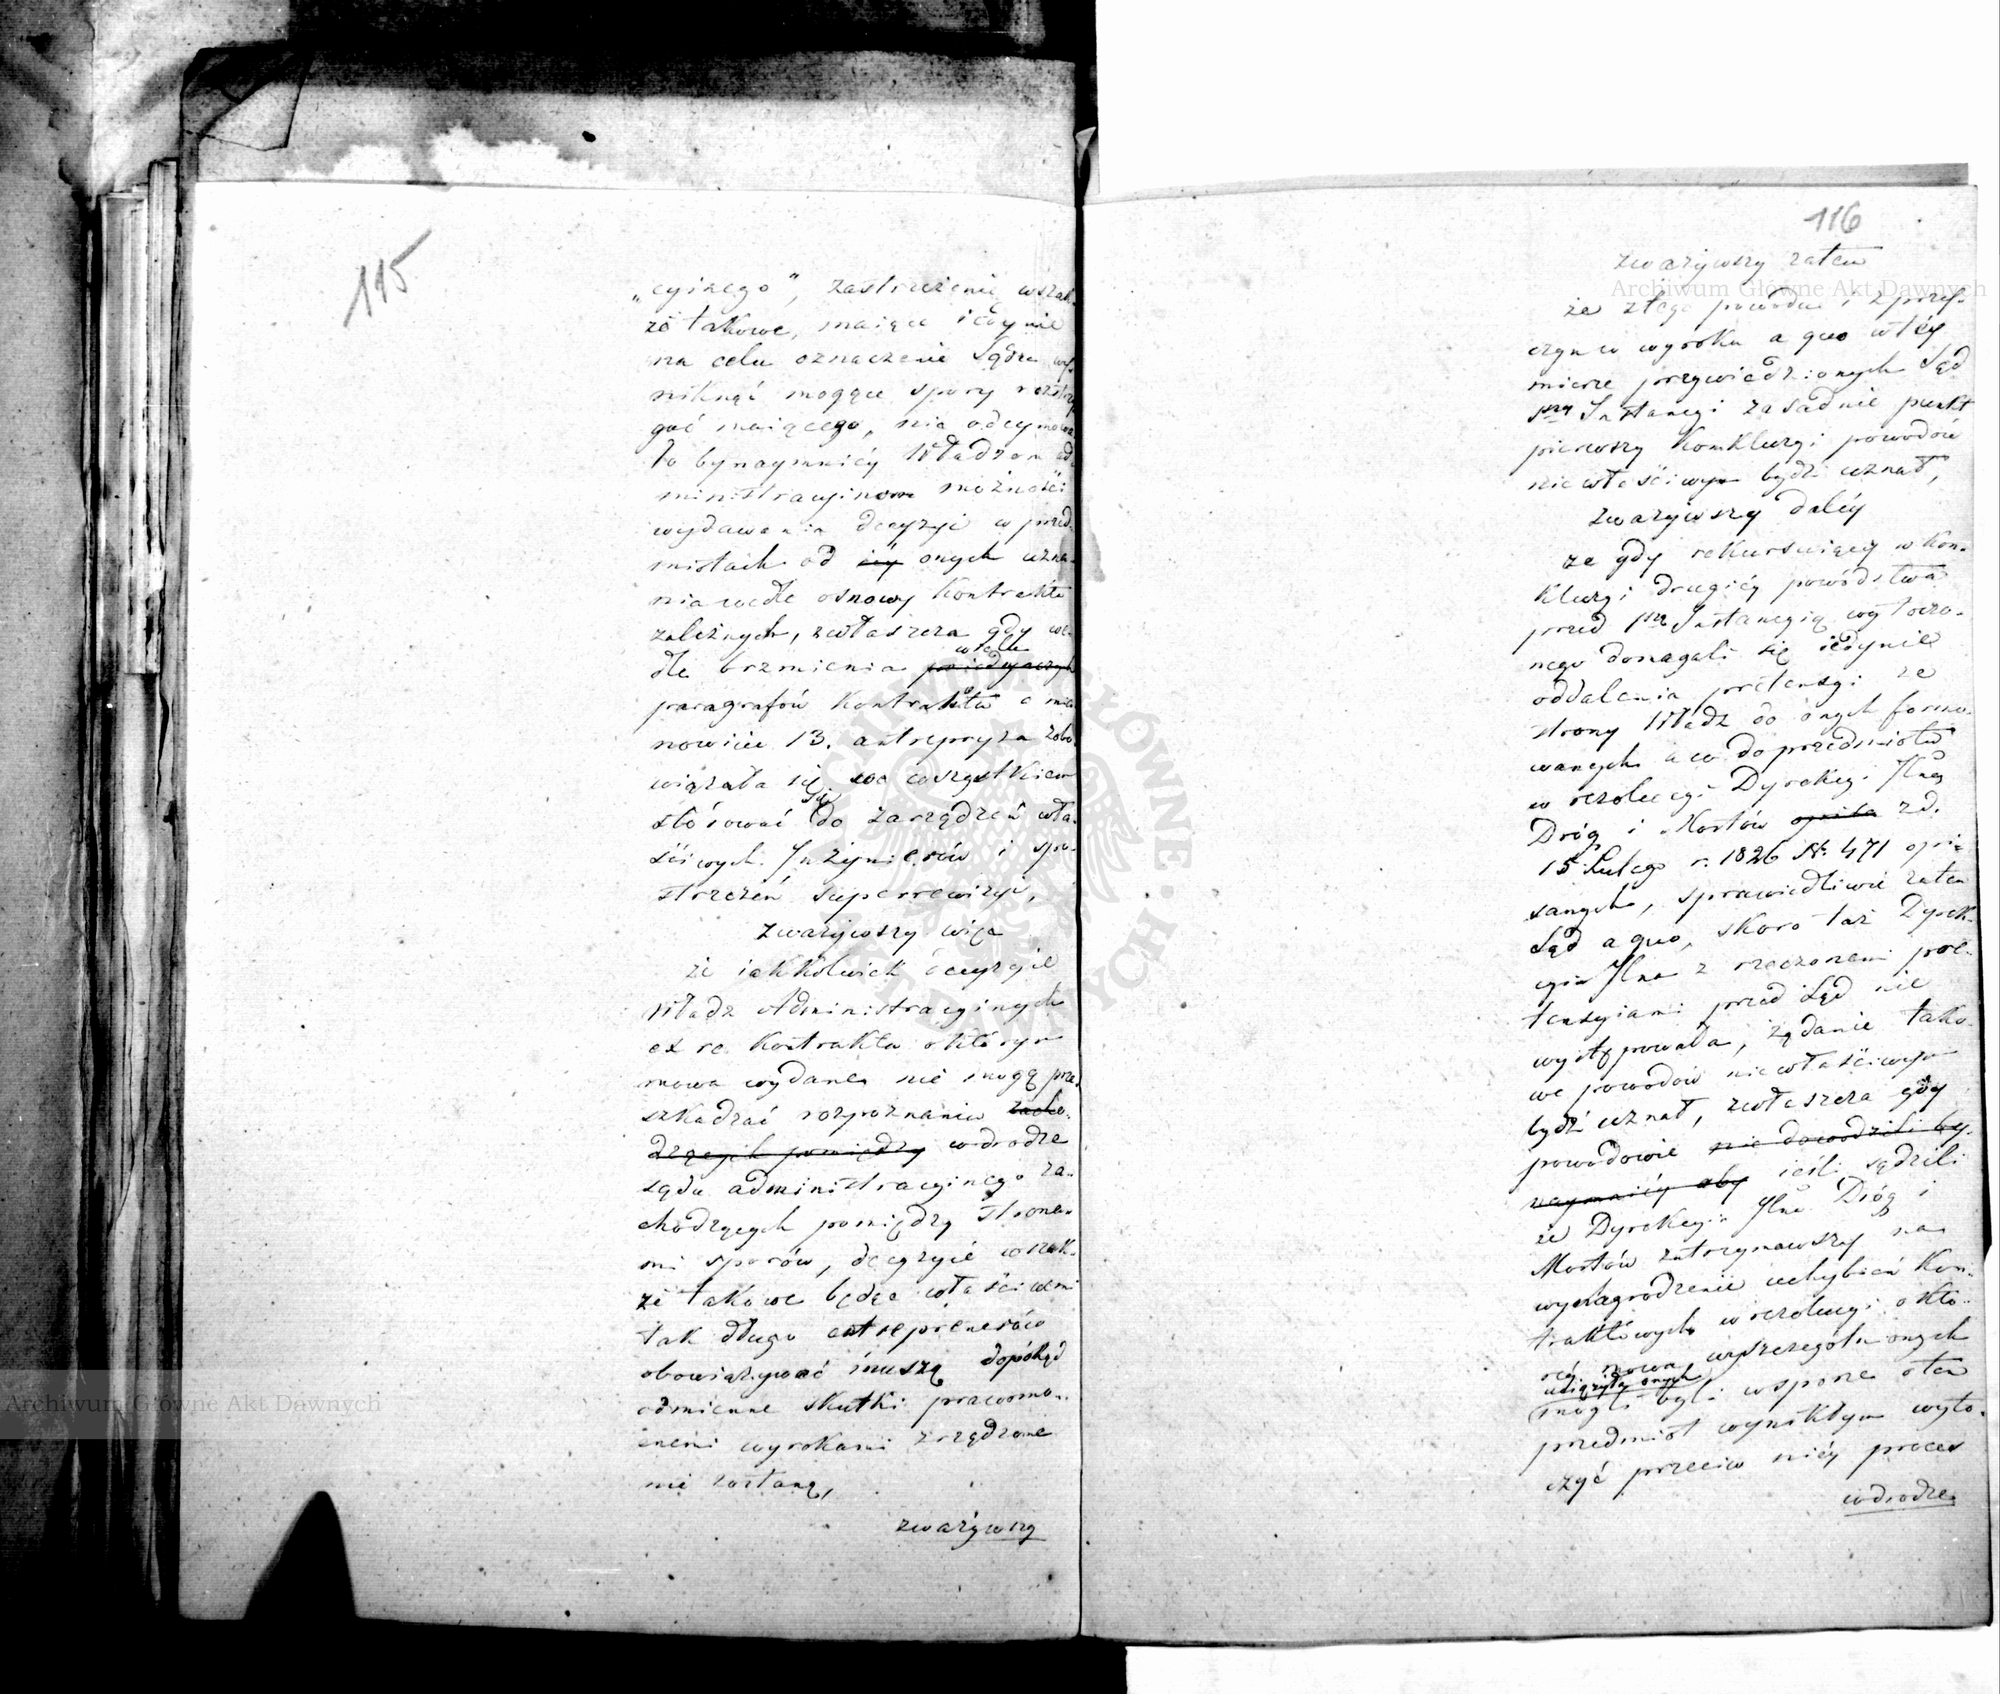 115
„cyinego”, zastrzeżenie wszak-
że takowe, maiące iedynie
na celu oznaczenie Sądu wy-
niknąć mogące spory rozstrzy
gać maiącego, nie odeymowa
to bynaymniéy Władzom ad-
ministracyinom możności
wydawania decyzyi w przed-
miotach od onych uzna-
nia wedle osnowy Kontraktu
zależnych, zwłaszcza gdy we-
dle brzmienia
wielu
paragrafów Kontraktu a mia
nowicie 13. antrepryza zobo-
wiązała się we wszystkiem
się
stósować do zarządzeń wła-
ściwych Inżynierów i spo-
strzeżeń superrewizyi,
zważywszy więc
że iakkolwiek decyzyie
Władz Administracyinych
ex re Kontraktu o którym
mowa wydane nie mogą prze-
szkadzać rozpoznaniu zacho-
dzących pomiędzy w drodze
sądu administracyinego za-
chodzących pomiędzy Strona-
mi sporów, decyzyie wszak-
że takowe będąc właściwemi
tak długo antreprenerów
obowiązywać muszą dopókąd
odmienne skutki prawomo-
cnemi wyrokami zrządzone
nie zostaną,
zważywszy
116
zważywszy zatem
że z tego powodu i z przy-
czyn w wyroku a quo w téy
mierze przywiedzionych Sąd
1szy Instancyi zasadnie punkt
pierwszy Konkluzyi powodów
niewłaściwym bydź uznał,
zważywszy daléy
że gdy rekursuiący w Kon-
kluzyi drugiéy powództwa
przed 1szą Instancyią wytoczo-
nego domagali się iedynie
oddalenia pretensyi ze
strony Władz do onych formo-
wanych a co do przedmiotu
w rezolucyi Dyrekcyi Jlney
Dróg i Mostów opisa zd.
15 Lutego r. 1826 N. 471 opi-
sanych, sprawiedliwie zatem
Sąd a quo, skoro taż Dyrek-
cyia Jlna z rzeczonemi pre-
tensyiami przed Sąd nie
występowała, żądanie tako-
we powodów niewłaściwym
bydź uznał, zwłaszcza gdy
powodowie nie dowodzili by-
naymniéy aby ieśli sądzili
że Dyrekcyia Jlna Dróg i
Mostów zatrzymawszy na
wynagrodzenie uchybień Kon-
traktowych w rezolucyi o któ-
réy mowa, wyszczególnionych
onych
mogli byli w sporze o ten
przedmiot wynikłym wyto-
czyć przeciw niéy proces
w drodze